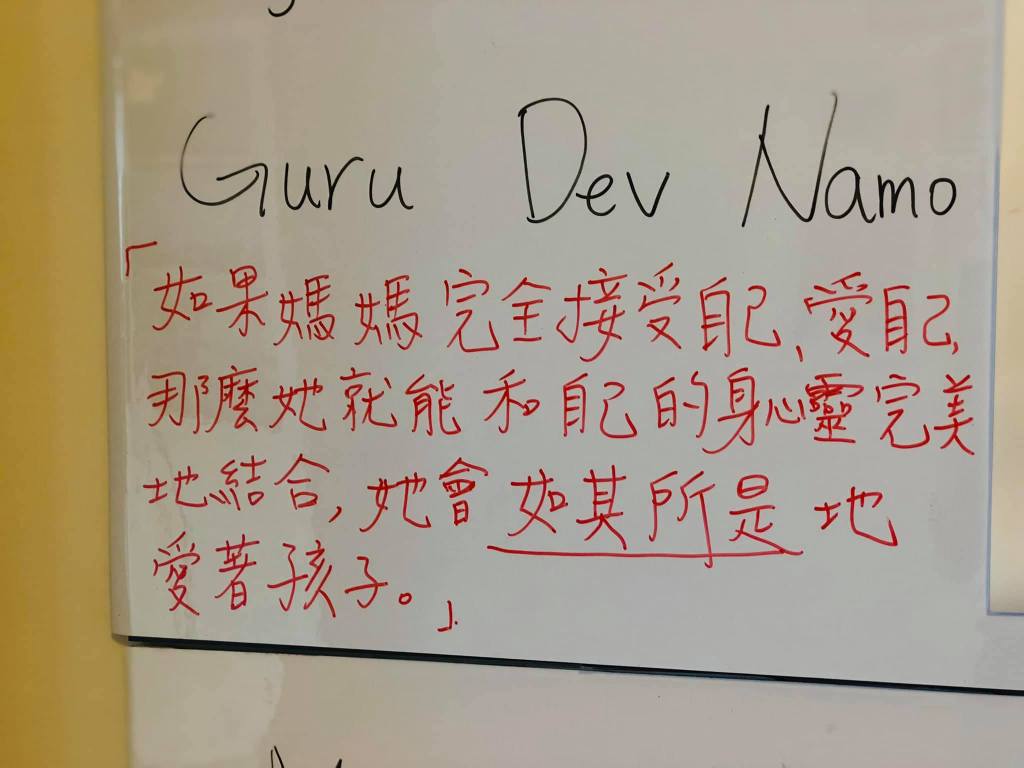 Guru Dev Namo
「如果媽媽完全接受自己、愛自己,
那麼她就能和自己的身心靈完美
地結合,她會如其所是地
愛著孩子。」